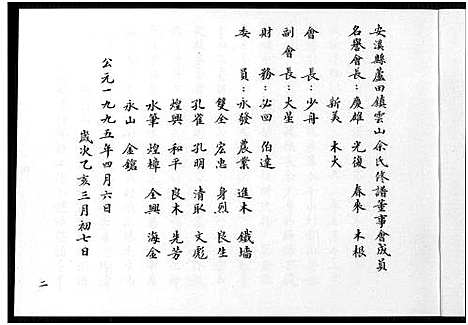 安溪縣蘆田鎮雲山余氏修譜董事會成員
名譽會長：廣雄 光復 春來 木根
新美 木大
會長：少舟
副會長：火星
財務：必回 伯達
委員：永發 農業 進木 鐵墻
雙全 宏忠 身烈 良生
孔雀 孔明 清取 文彪
煌興 和平 良木 先芳
水筆 煌樟 全興 海金
永山 金鎗
公元一九九五年四月六日
歲次乙亥三月初七日
二